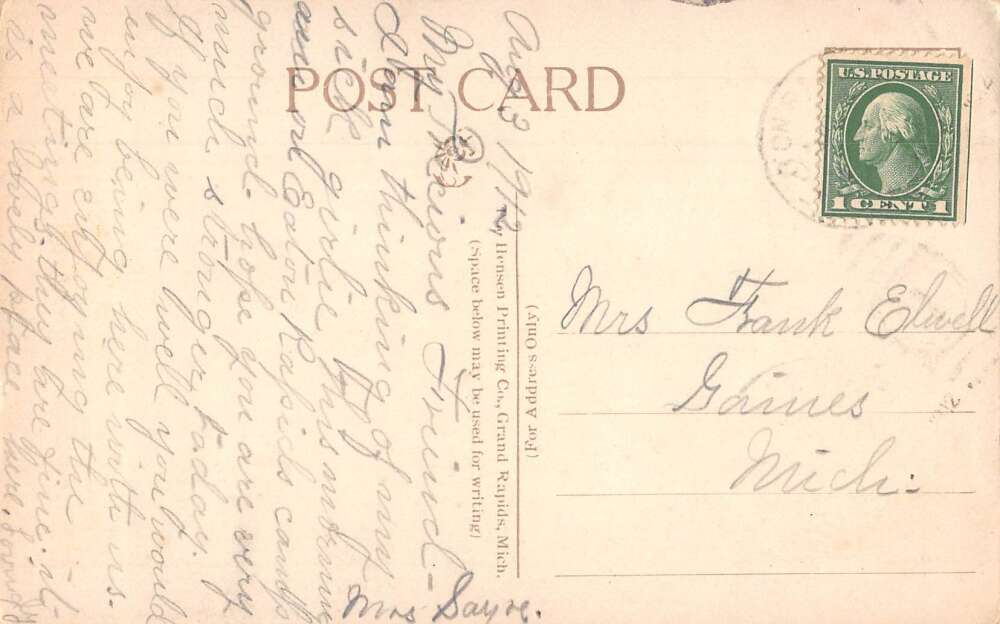 POST CARD
U.S. POSTAGE
1 CENT 1
Aug 13 1912
My Precious Friend—
I am thinking of my
sick girlie this morning
am on Eaton Rapids camp
ground. hope you are very
much stronger today.
If you were well you would
enjoy being here with us.
we are enjoying the
meetings, they are fine. it
is a lovely place here.
Mrs Sayre.
By Hensen Printing Co., Grand Rapids, Mich.
(Space below may be used for writing)
(For Address Only)
Mrs Frank Elwell
Gaines
Mich.